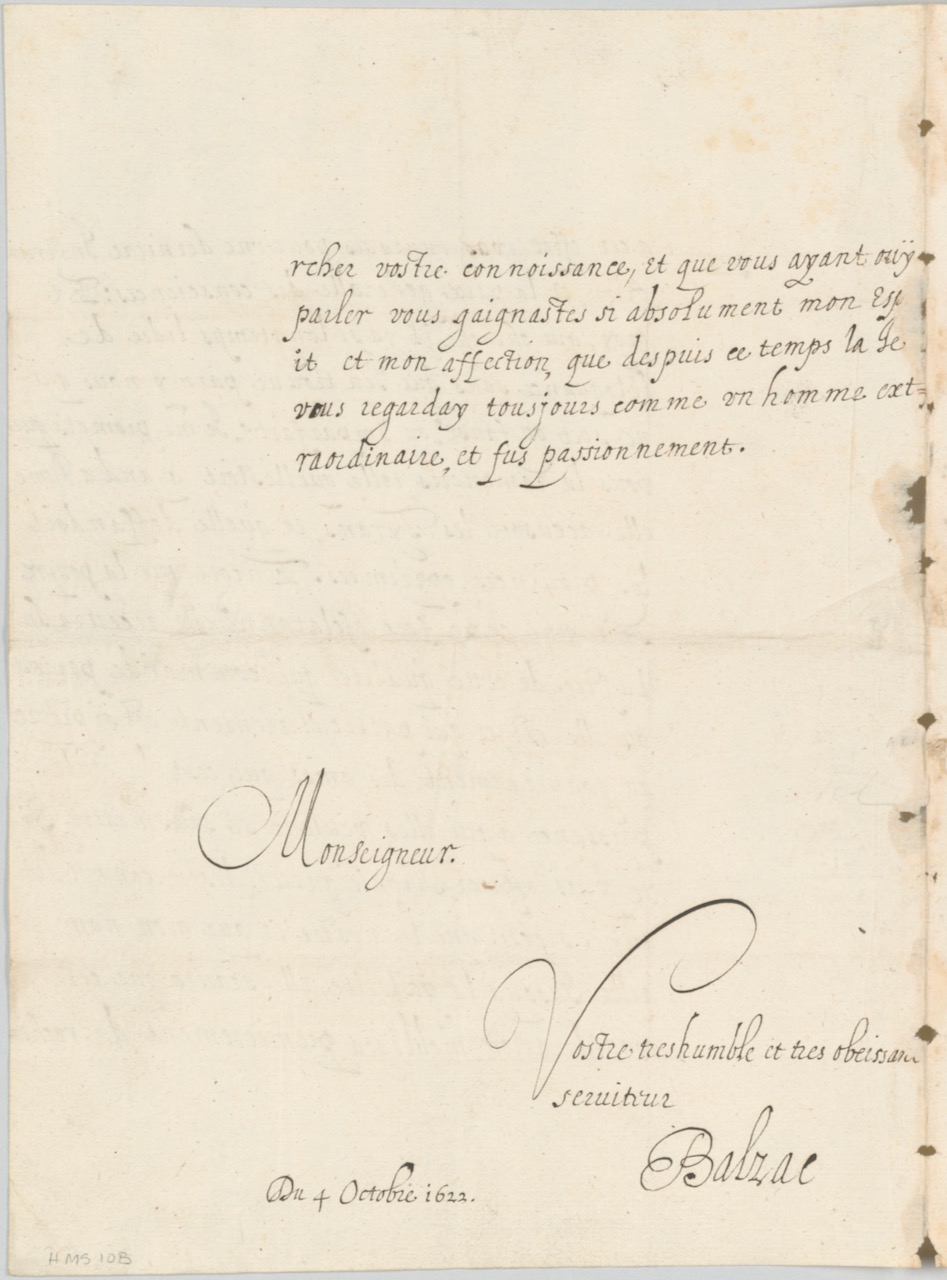 rcher vostre connoissance, et que vous ayant ouÿ
parler vous gaignastes si absolument mon Esp
it et mon affection, que despuis ce temps la Je
vous regarday tousjours comme vn homme ext=
raordinaire, et fus passionnement.
Monseigneur.
Vostre treshumble et tres obeissant
seruiteur
Balzac
Du 4 Octobre 1622.
HMS 10B